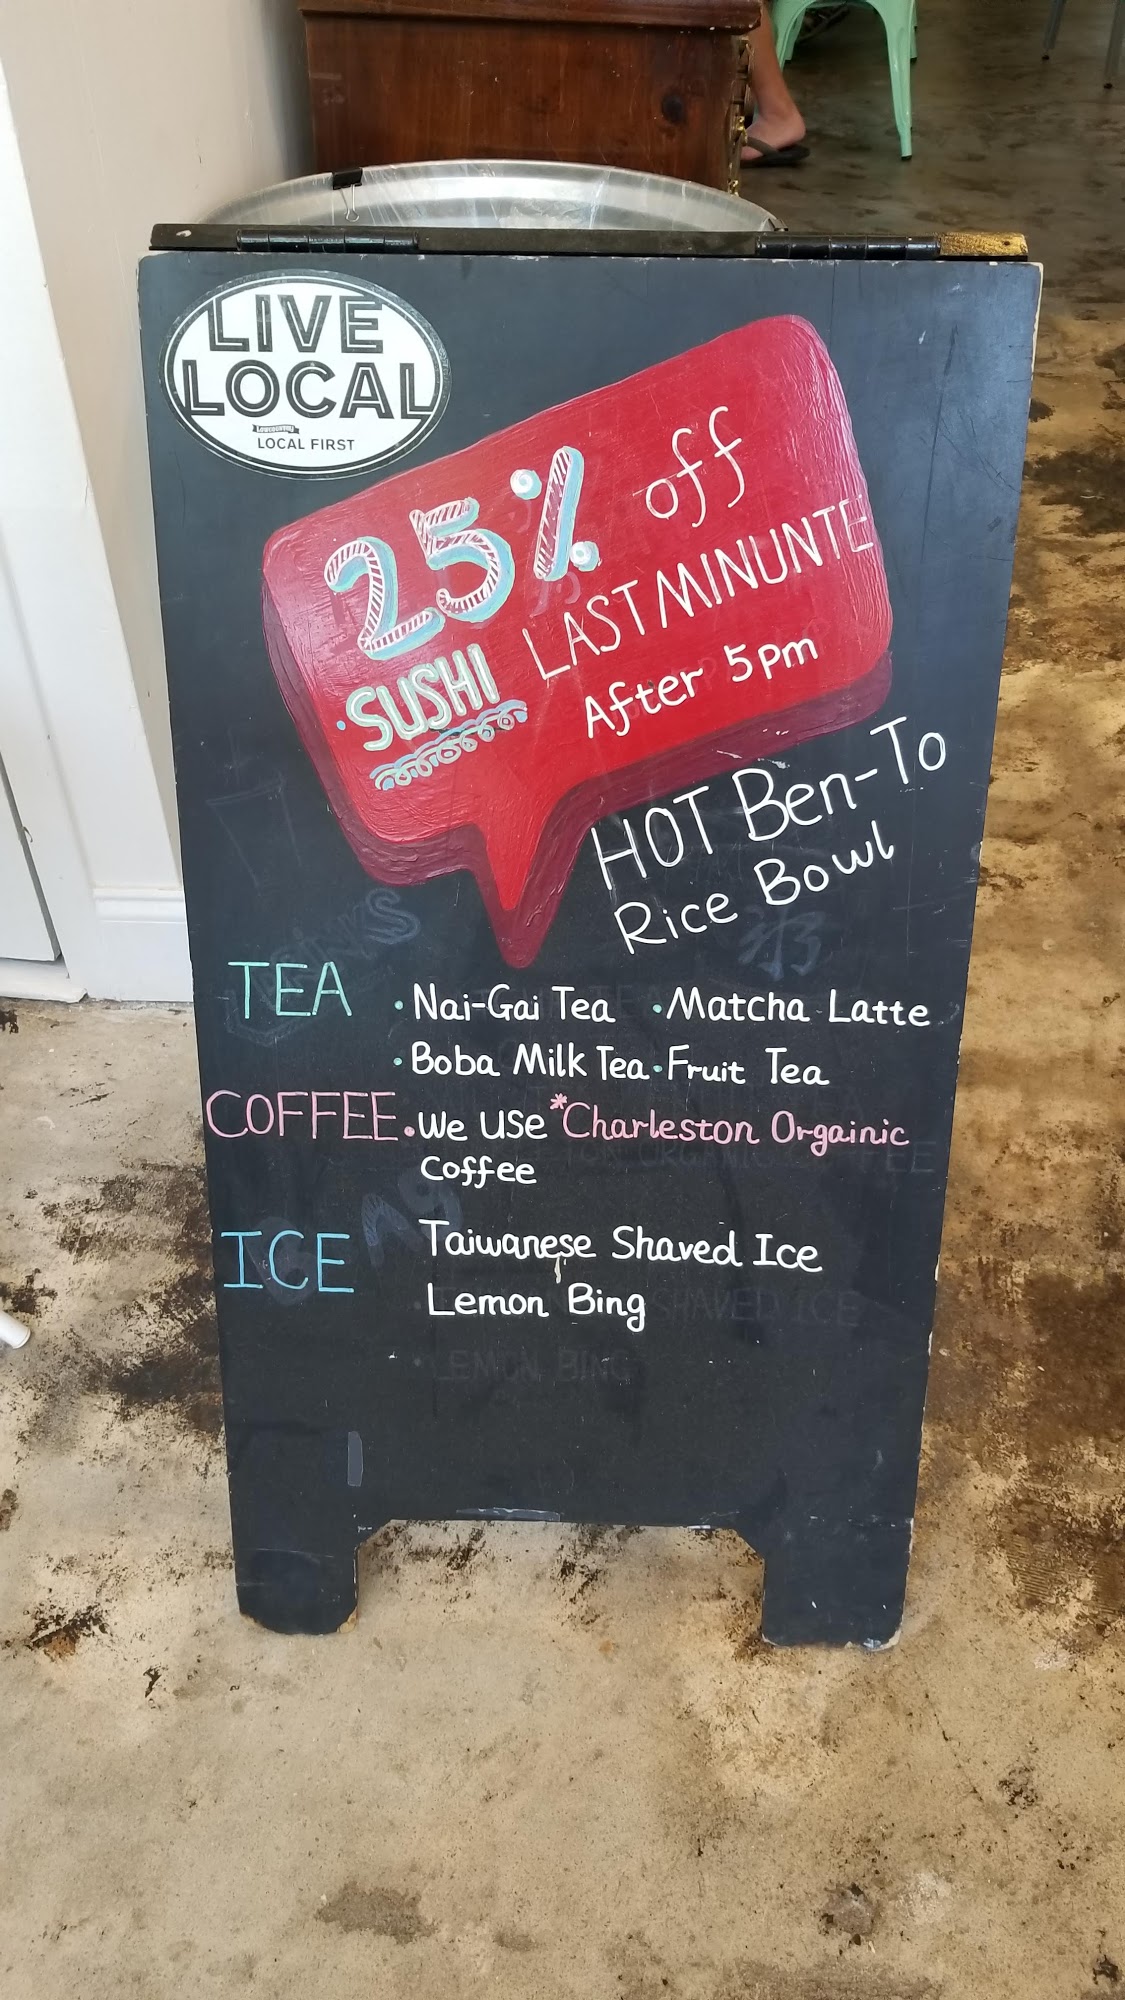 LIVE
LOCAL
LOWCOUNTRY
LOCAL FIRST
25% off
SUSHI LAST MINUNTE
After 5pm
HOT Ben-To
Rice Bowl
TEA • Nai-Gai Tea • Matcha Latte
• Boba Milk Tea • Fruit Tea
COFFEE • We USE *Charleston Orgainic
Coffee
ICE Taiwanese Shaved Ice
Lemon Bing
SHAVED ICE
LEMON BING